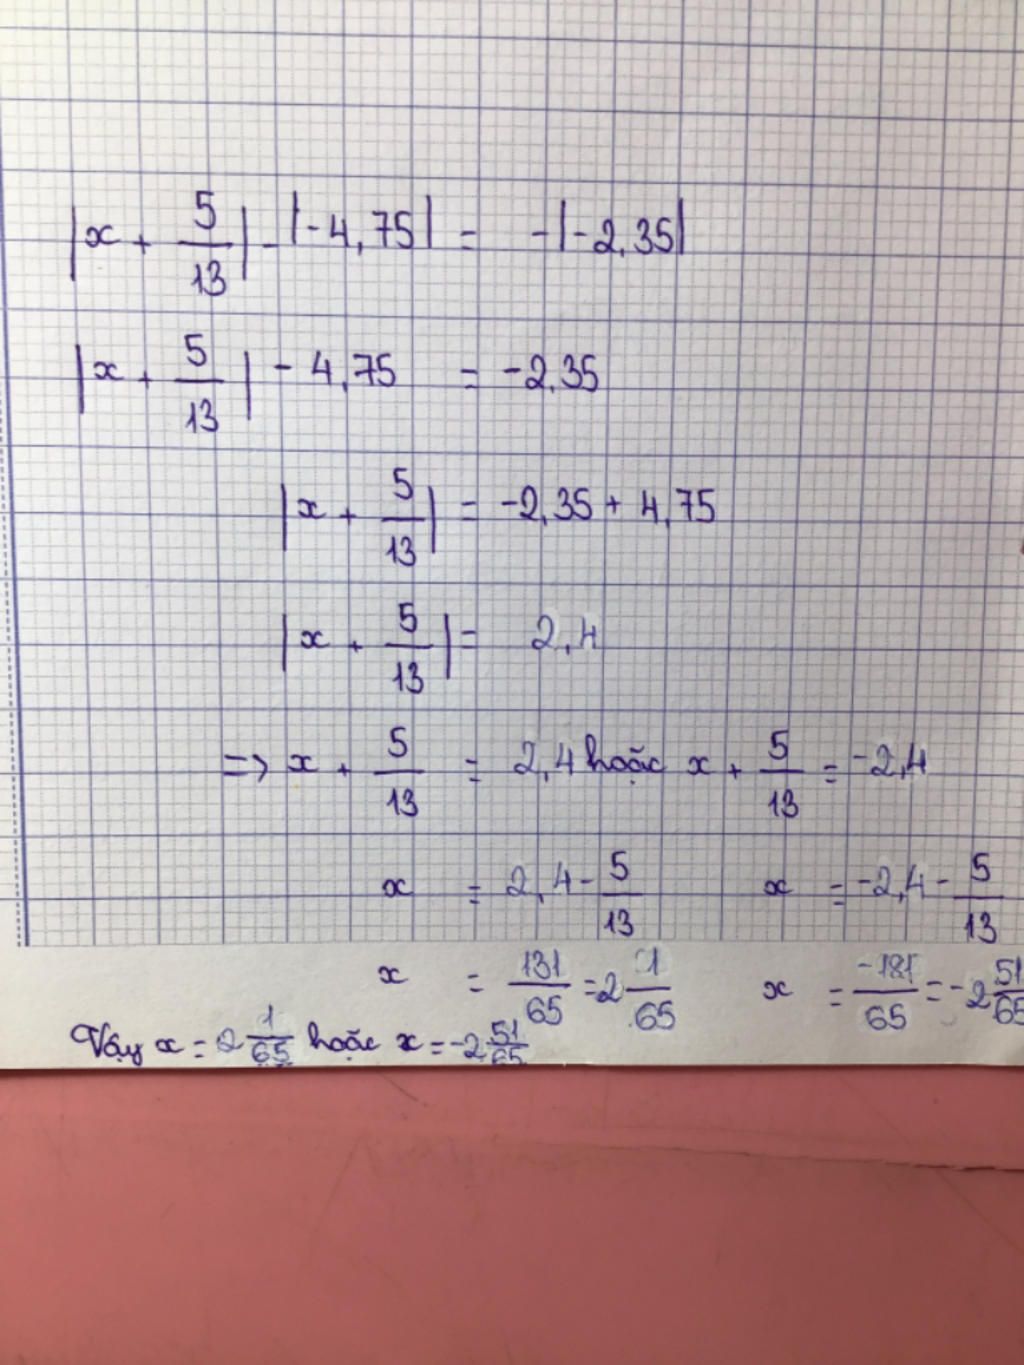 |x + 5/13| - |-4,75| = -|-2,35|
|x + 5/13| - 4,75 = -2,35
|x + 5/13| = -2,35 + 4,75
|x + 5/13| = 2,4
=> x + 5/13 = 2,4 hoặc x + 5/13 = -2,4
x = 2,4 - 5/13 x = -2,4 - 5/13
x = 131/65 = 2 1/65 x = -181/65 = -2 51/65
Vậy x = 2 1/65 hoặc x = -2 51/65